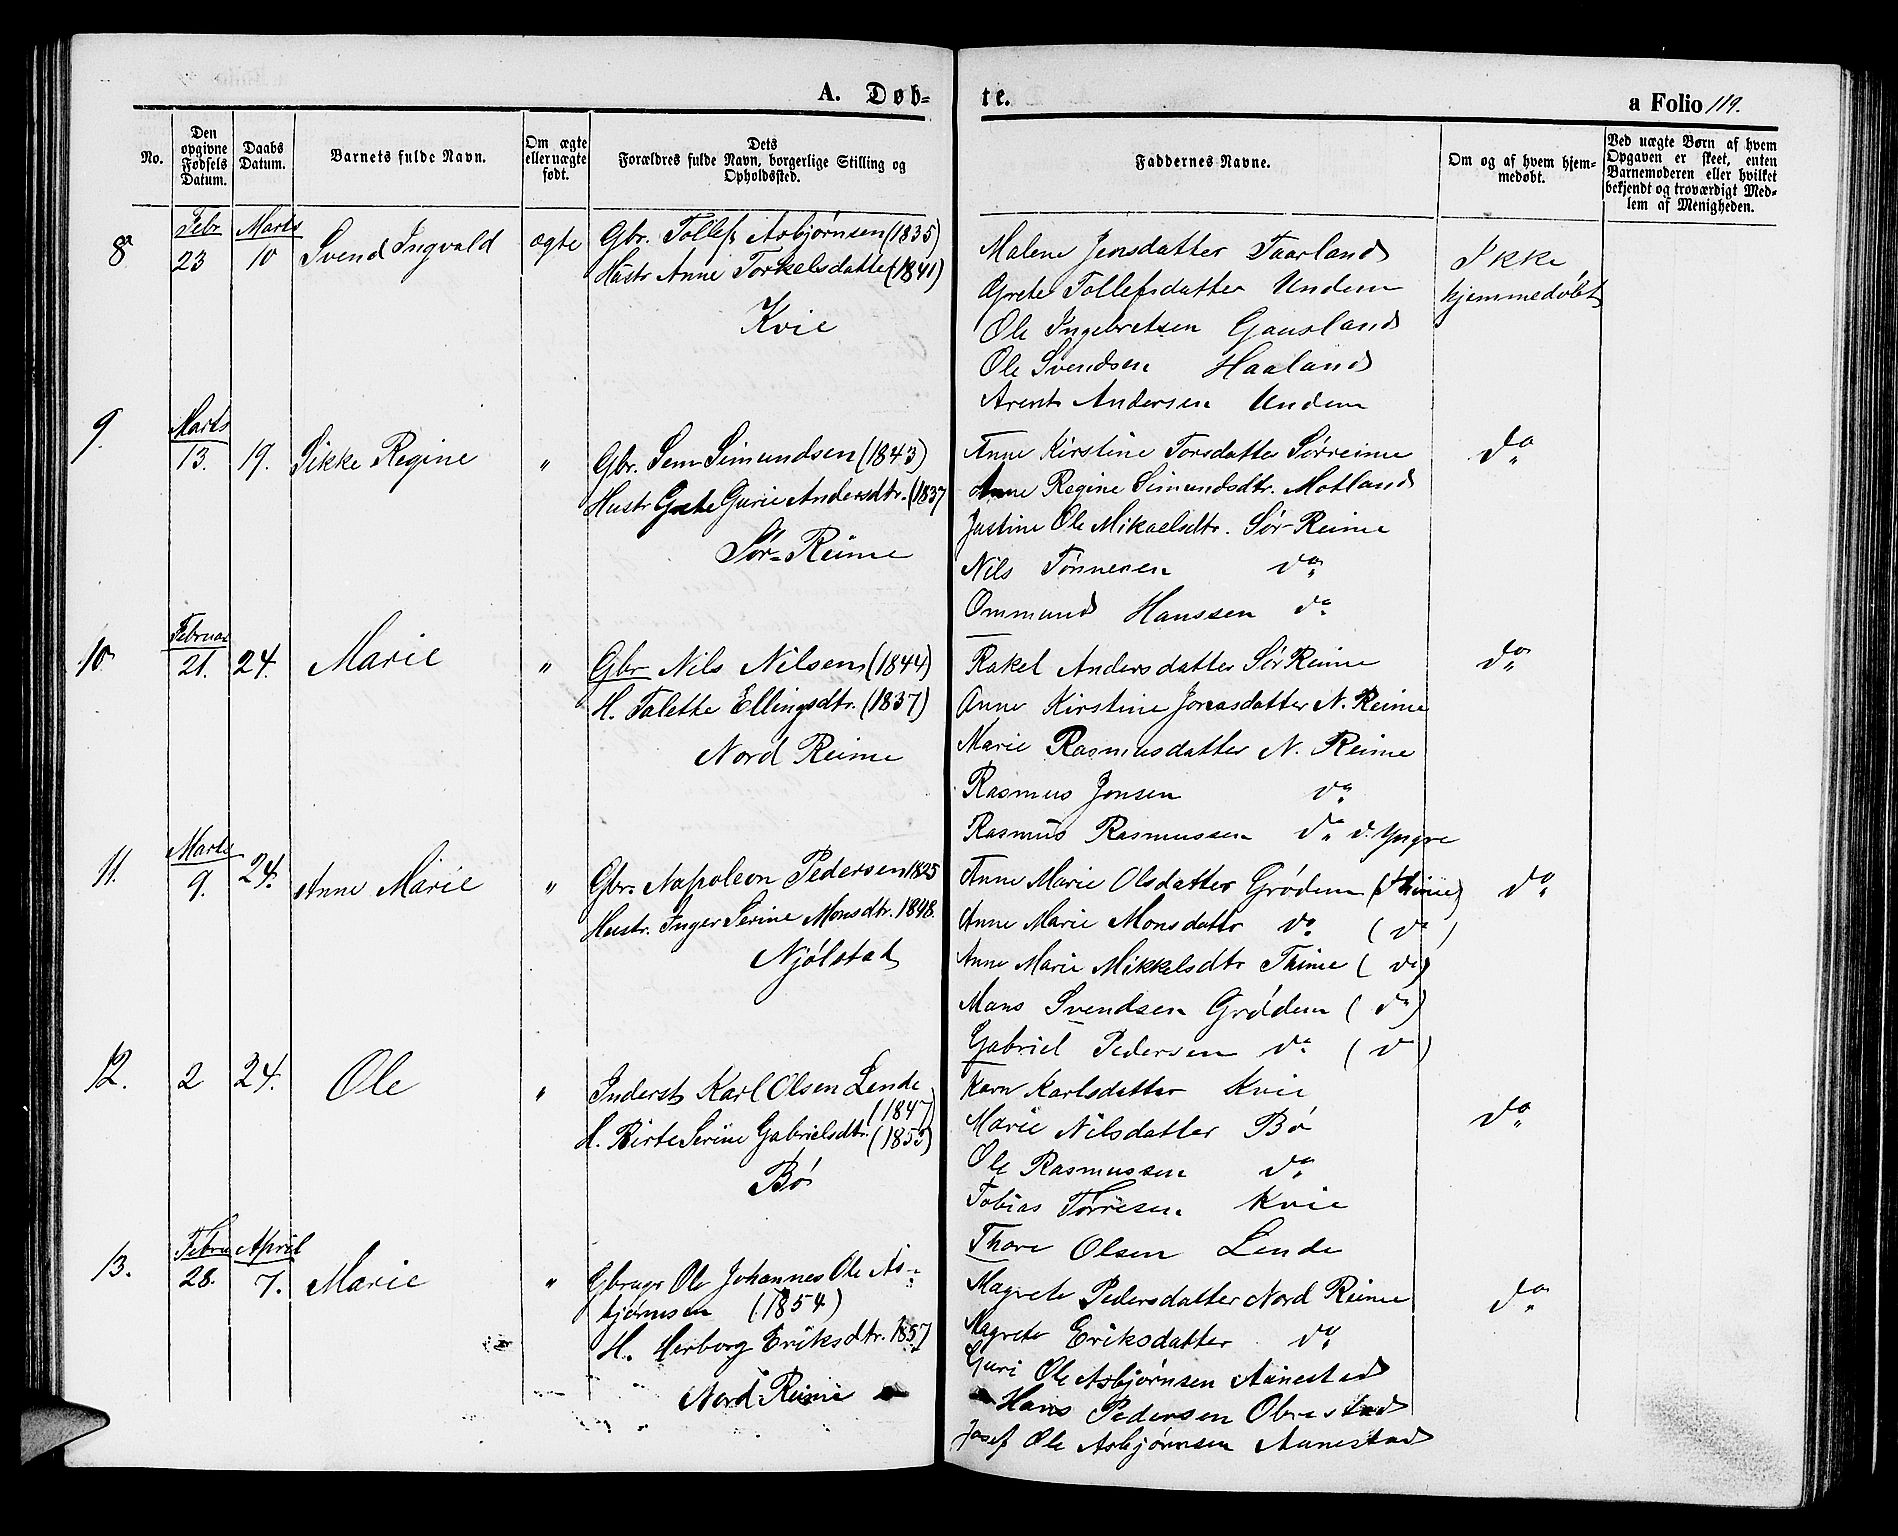 A. Døb-
te.
a Folio 119.
No.
Den opgivne Fødsels Datum.
Daabs Datum.
Barnets fulde Navn.
Om ægte eller uægte født.
Dets Forældres fulde Navn, borgerlige Stilling og Opholdssted.
Faddernes Navne.
Om og af hvem hjemmedøbt.
Ved uægte Børn af hvem Opgaven er skeet, enten Barnemoderen eller hvilket bekjendt og troværdigt Medlem af Menigheden.
8
Febr. 23
Marts 10
Svend Ingvald
ægte
Gbr. Tollef Asbjørnsen (1835)
Hustr Anne Torkelsdatter (1841)
Kvie
Malene Jensdatter Taarland
Grete Tollefsdatter Undem
Ole Ingebretsen Gausland
Ole Svendsen Haaland
Arent Andersen Undem
Ikke
hjemmedøbt
9.
Marts 13.
19.
Sikke Regine
"
Gbr. Sem Simundsen (1843)
Hustr Grete Gurie Andersdtr. (1837
Sør-Reime
Anne Kirstine Torsdatter Sørreime
Anne Regine Simundsdtr. Motland
Justine Ole Mikaelsdtr. Sør-Reime
Nils Tønnesen do
Ommund Hanssen do
do
10
Februar 21.
24.
Marie
"
Gbr Nils Nilsen (1844)
H. Talette Ellingsdtr. (1837)
Nord Reime
Rakel Andersdatter Sør Reime
Anne Kirstine Jonasdatter N. Reime
Marie Rasmusdatter N. Reime
Rasmus Jonsen do
Rasmus Rasmussen do d. Yngre
do
11.
Marts 9.
24.
Anne Marie
"
Gbr. Napoleon Pedersen 1825
Hustr. Inger Serine Monsdtr. 1848.
Njølstad
Anne Marie Olsdatter Grødem (Thime)
Anne Marie Monsdattr do (do)
Anne Marie Mikkelsdtr Thime (do)
Mons Svendsen Grødem (do)
Gabriel Pedersen do (do)
do
12.
2
24.
Ole
"
Inderst Karl Olsen Lende
(1847)
H. Birte Serine Gabrielsdtr. (1853)
Bø
Karn Karlsdatter Kvie
Marie Nilsdatter Bø
Ole Rasmussen do
Tobias Tørresen Kvie
Thore Olsen Lende
do
13.
Febru 28.
April 7.
Marie
"
Gbruger Ole Johannes Ole As-
bjørnsen (1854)
H. Herborg Eriksdtr. 1857
Nord Reime
Magrete Pedersdatter Nord Reime
Magrete Eriksdatter do
Guri Ole Asbjørnsen Aanestad
Hans Pedersen Obrestad
Josef Ole Asbjørnsen Aanestad
do